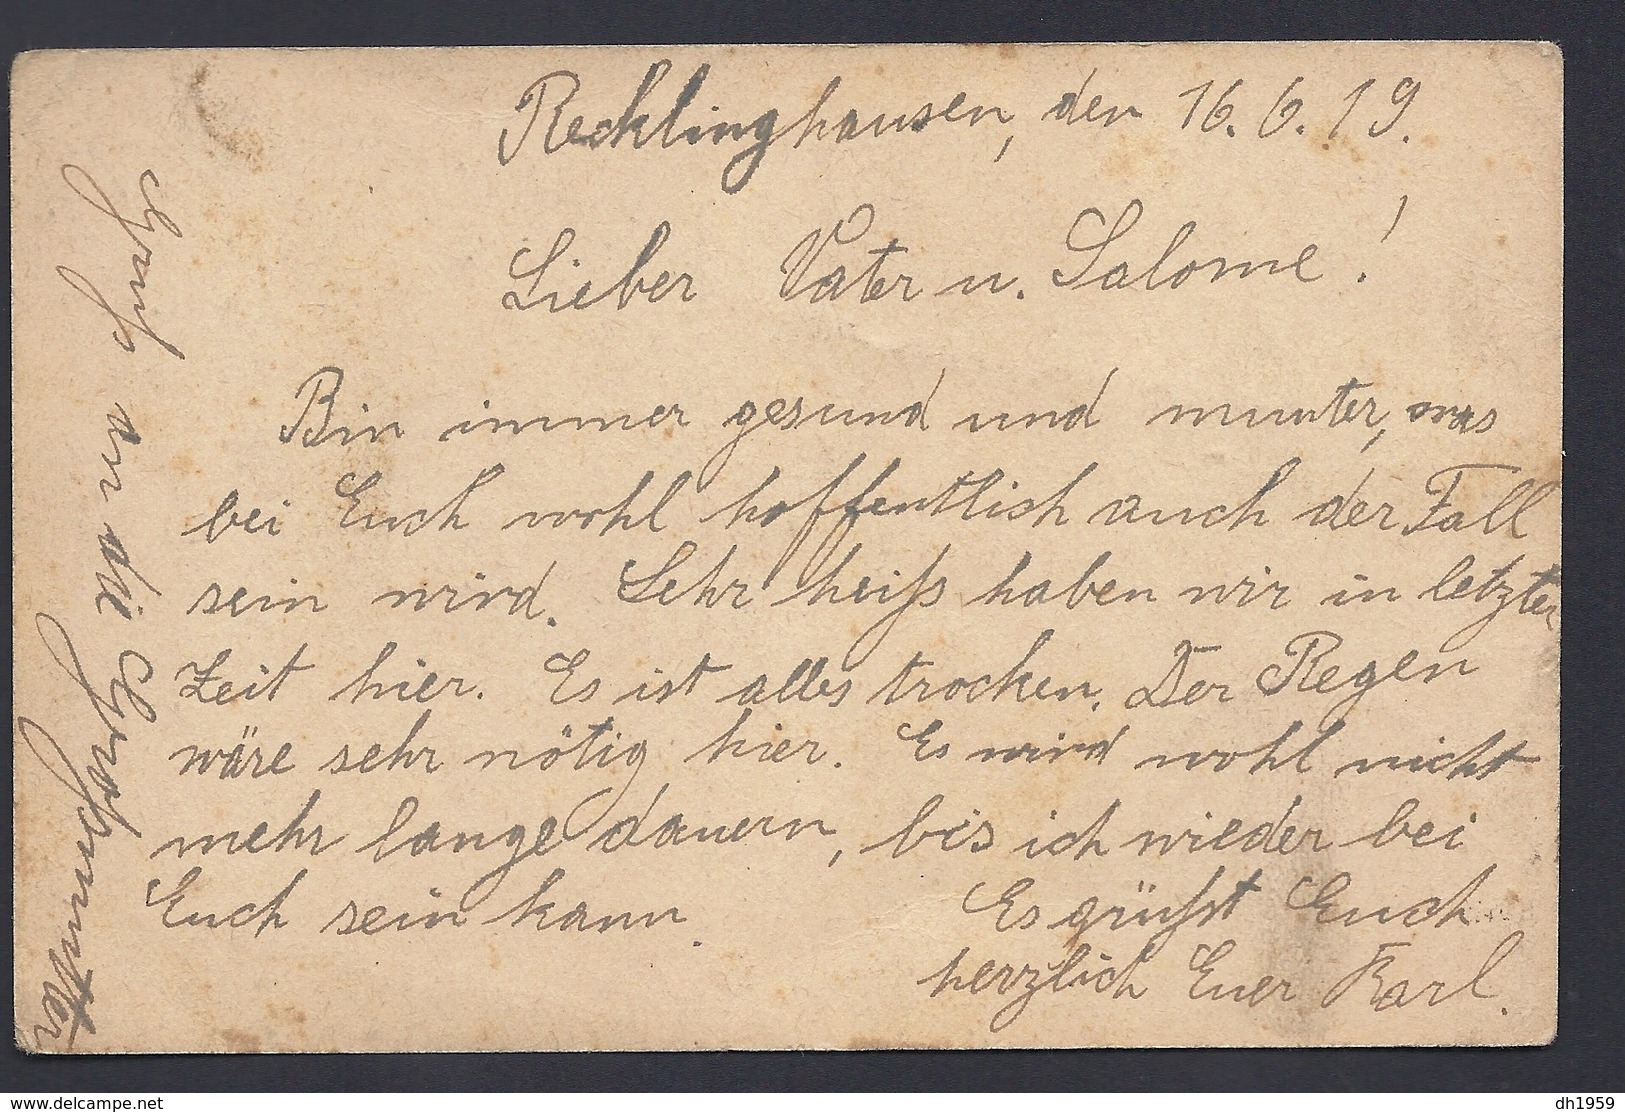 Recklinghausen, den 16.6.19.
Lieber Vater u. Salome!
Bin immer gesund und munter, was
bei Euch wohl hoffentlich auch der Fall
sein wird. Sehr heiß haben wir in letzter
Zeit hier. Es ist alles trocken. Der Regen
wäre sehr nötig hier. Es wird wohl nicht
mehr lange dauern, bis ich wieder bei
Euch sein kann. Es grüßt Euch
herzlich Euer Karl.
Gruß an die Großmutter
www.delcampe.net
dh1959